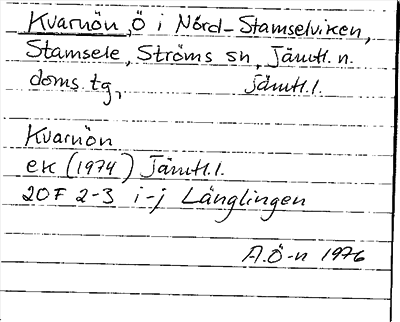 Kvarnön, Ö i Nord-Stamselviken,
Stamsele, Ströms sn, Jämtl. n.
doms. tg, Jämtl. l.
Kvarnön
ek (1974) Jämtl. l.
20F 2-3 i-j Länglingen
A.Ö-n 1976